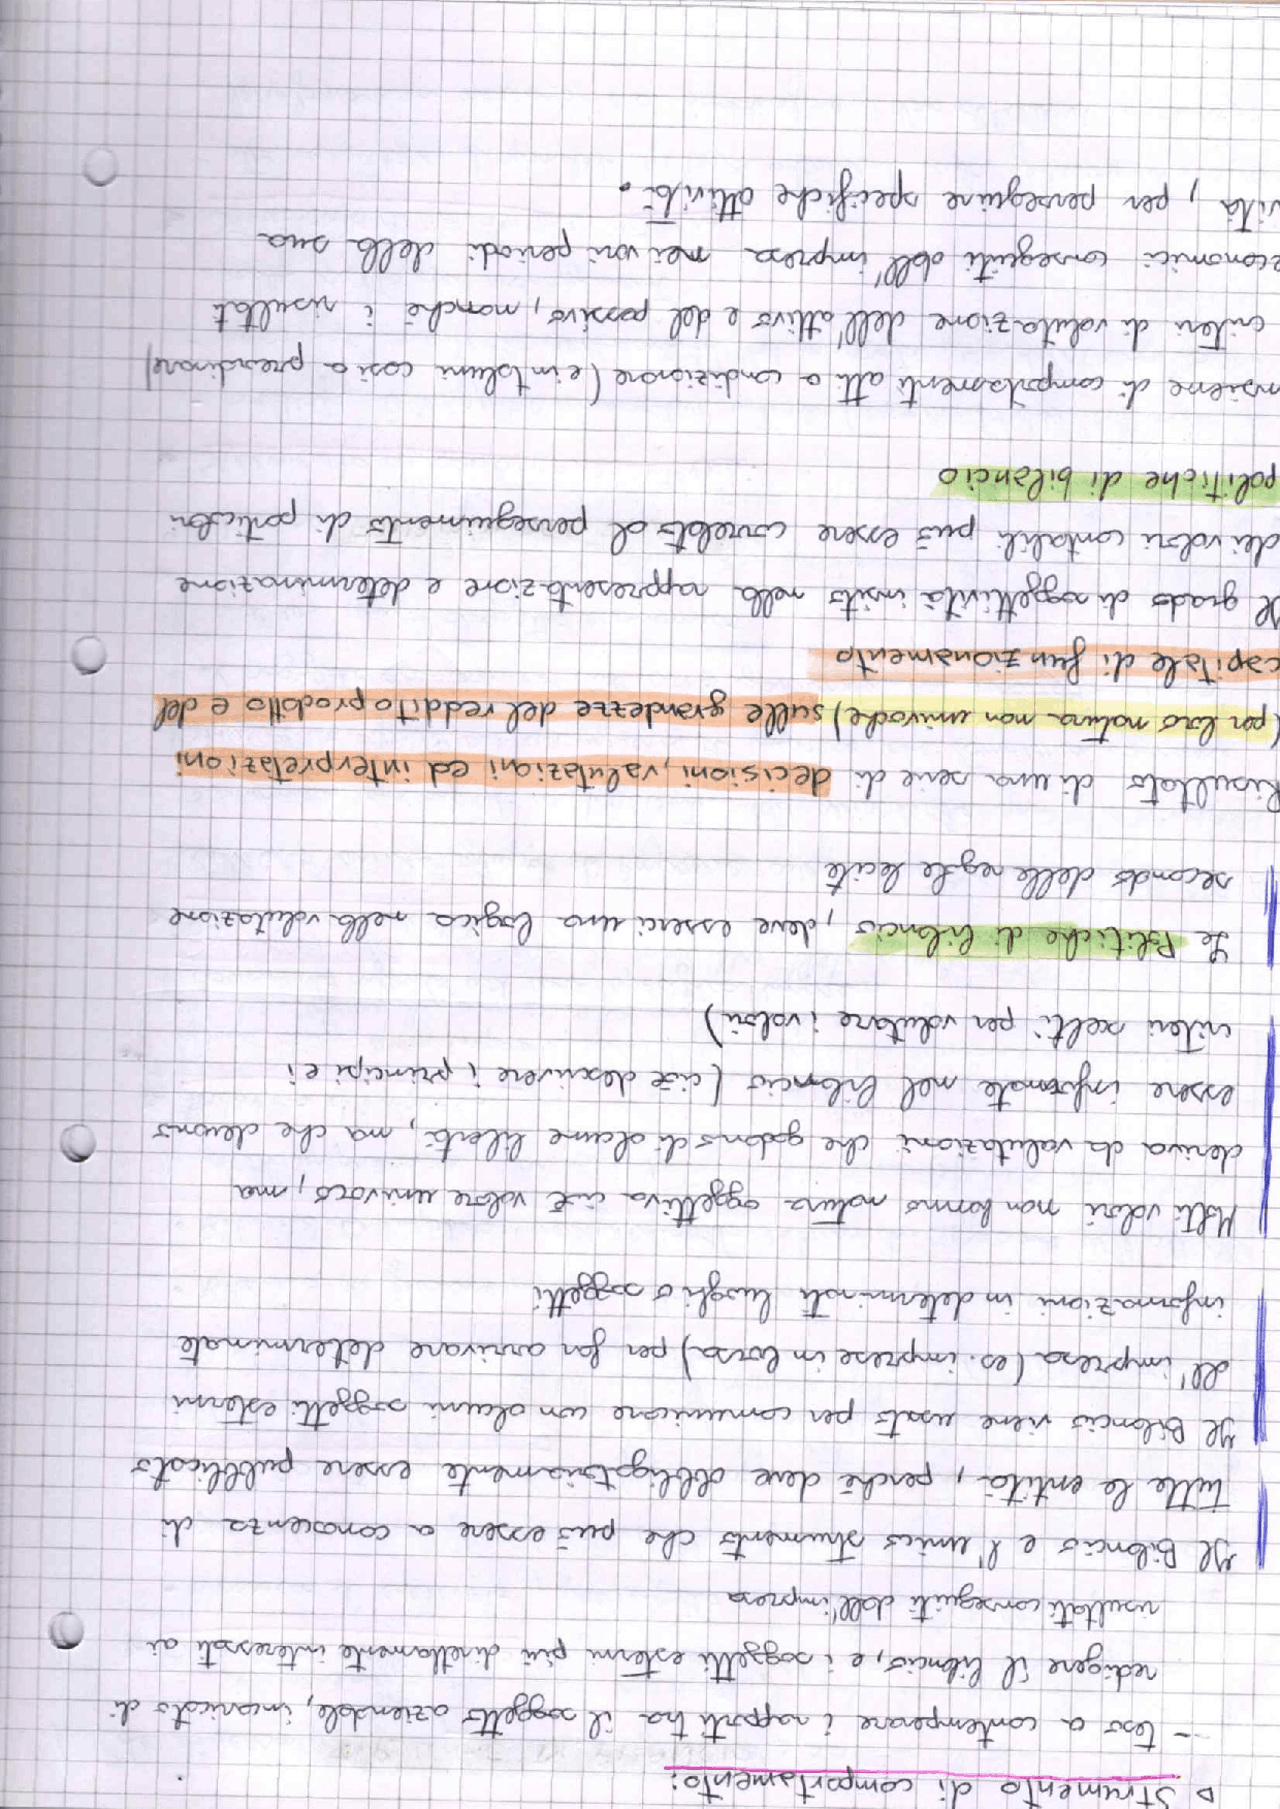 ▷ Strumento di comportamento:
- teso a contemperare i rapporti tra il soggetto aziendale, incaricato di
redigere il bilancio, e i soggetti esterni più direttamente interessati ai
risultati conseguiti dall'impresa
Il Bilancio e l'unico strumento che può essere a conoscenza di
tutte le entità, perchè deve obbligatoriamente essere pubblicato
Il Bilancio viene usato per comunicare con alcuni soggetti esterni
all'impresa (es. imprese in borsa) per far arrivare determinate
informazioni in determinati luoghi o soggetti
Molti valori non hanno natura oggettiva cioè valore univoco, ma
deriva da valutazioni che godono di alcune libertà, ma che devono
essere informate nel bilancio (cioè descrivere i principi e i
criteri scelti per valutare i valori)
Le Politiche di bilancio, deve esserci una logica nella valutazione
secondo delle regole lecite
Risultato di una serie di decisioni, valutazioni ed interpretazioni
(per loro natura non univoche) sulle grandezze del reddito prodotto e del
capitale di funzionamento
Il grado di soggettività insito nella rappresentazione e determinazione
dei valori contabili può essere correlato al perseguimento di particolari
politiche di bilancio
insieme di comportamenti atti a condizionare (e in taluni casi a preordinare)
criteri di valutazione dell'attivo e del passivo, nonchè i risultat
economici conseguiti dall'impresa nei vari periodi della sua
vita, per perseguire specifiche attività.